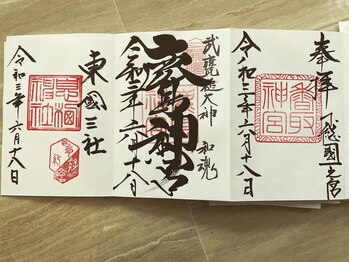 奉拝
下総國一之宮
香取神宮
令和三年六月十八日
武甕槌大神 和魂
鹿島神宮
令和三年六月十八日
東國三社
息栖神社
令和三年六月十八日